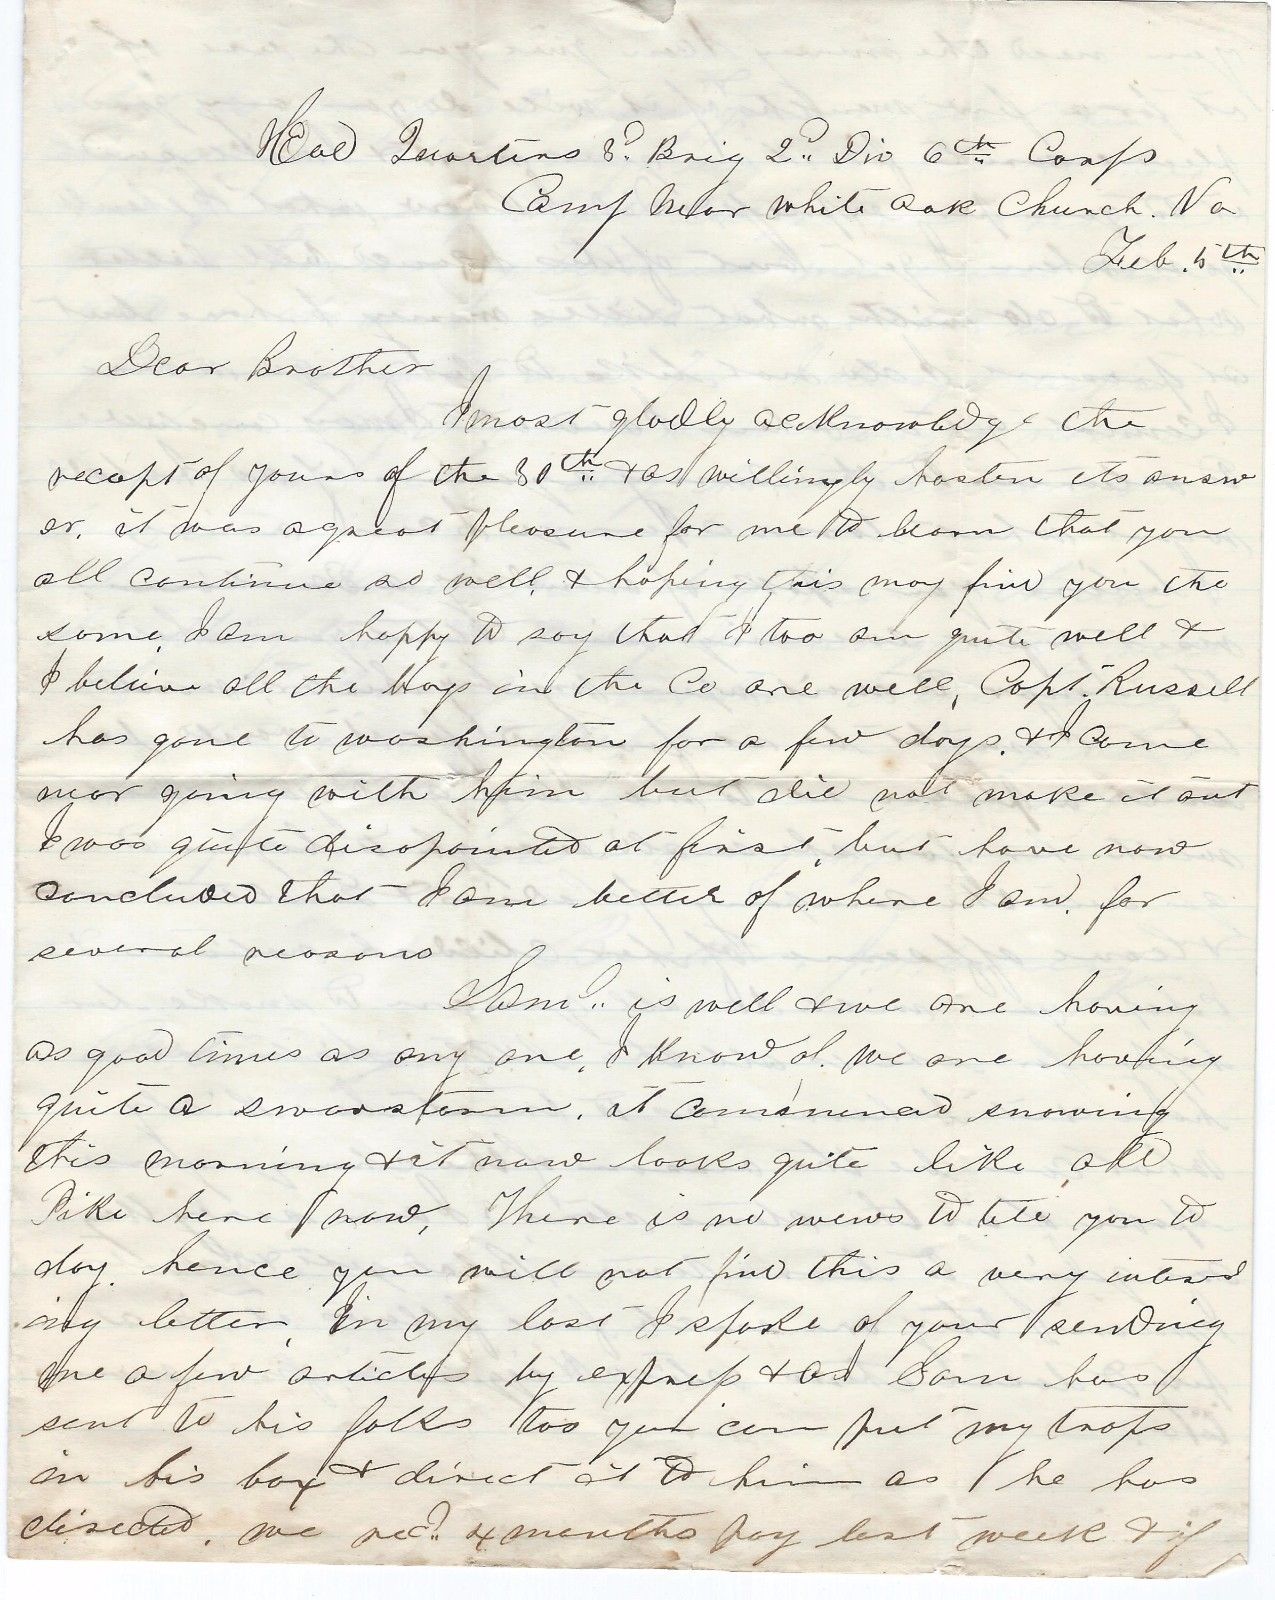 Head Quarters 3d. Brig 2d. Div 6th Corps
Camp Near White Oak Church. Va
Feb. 5th
Dear Brother
I most gladly acknowledge the
recept of yours of the 30th & as willingly hasten its answ
er. it was a great pleasure for me to learn that you
all continue so well. & hoping this may find you the
same, I am happy to say that I too am quite well &
I believe all the boys in the Co are well, Capt. Russell
has gone to washington for a few days. & I came
near going with him but did not make it out
I was quite disapointed at first, but have now
concluded that I am better of where I am. for
several reasons
Saml. is well & we are having
as good times as any one, I know of. we are having
quite a snowstorm. it commenced snowing
this morning & it now looks quite like old
Pike here now, There is no news to tell you to
day. hence you will not find this a very interest
ing letter, In my last I spoke of your sending
me a few articles by express & as Sam has
sent to his folks too you can put my traps
in his box & direct it to him as he has
directed. we recd. 4 months pay last week & if